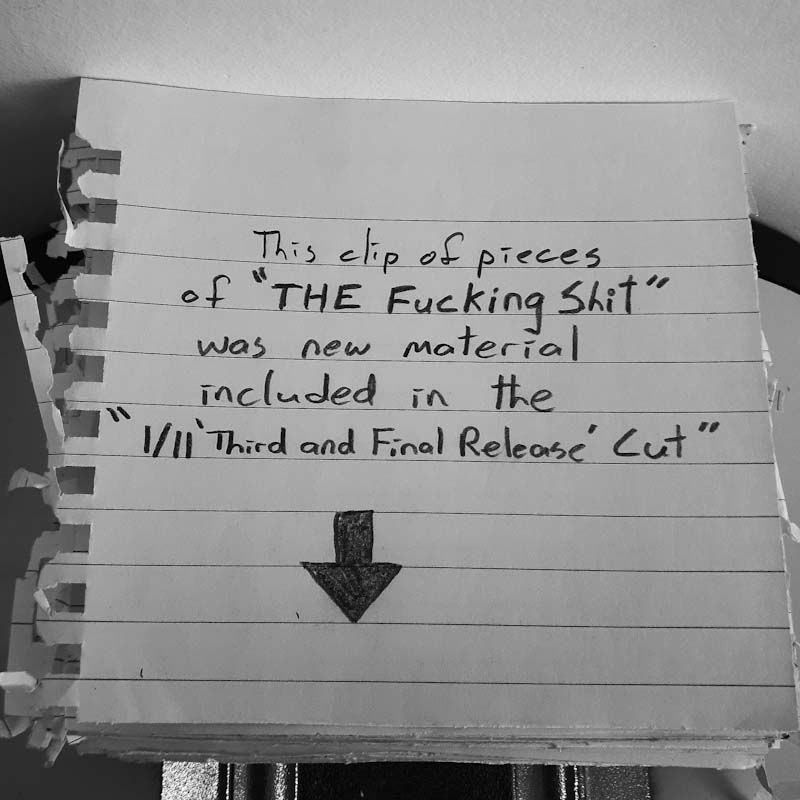 This clip of pieces
of "THE Fucking Shit"
was new material
included in the
"I/II 'Third and Final Release' Cut"